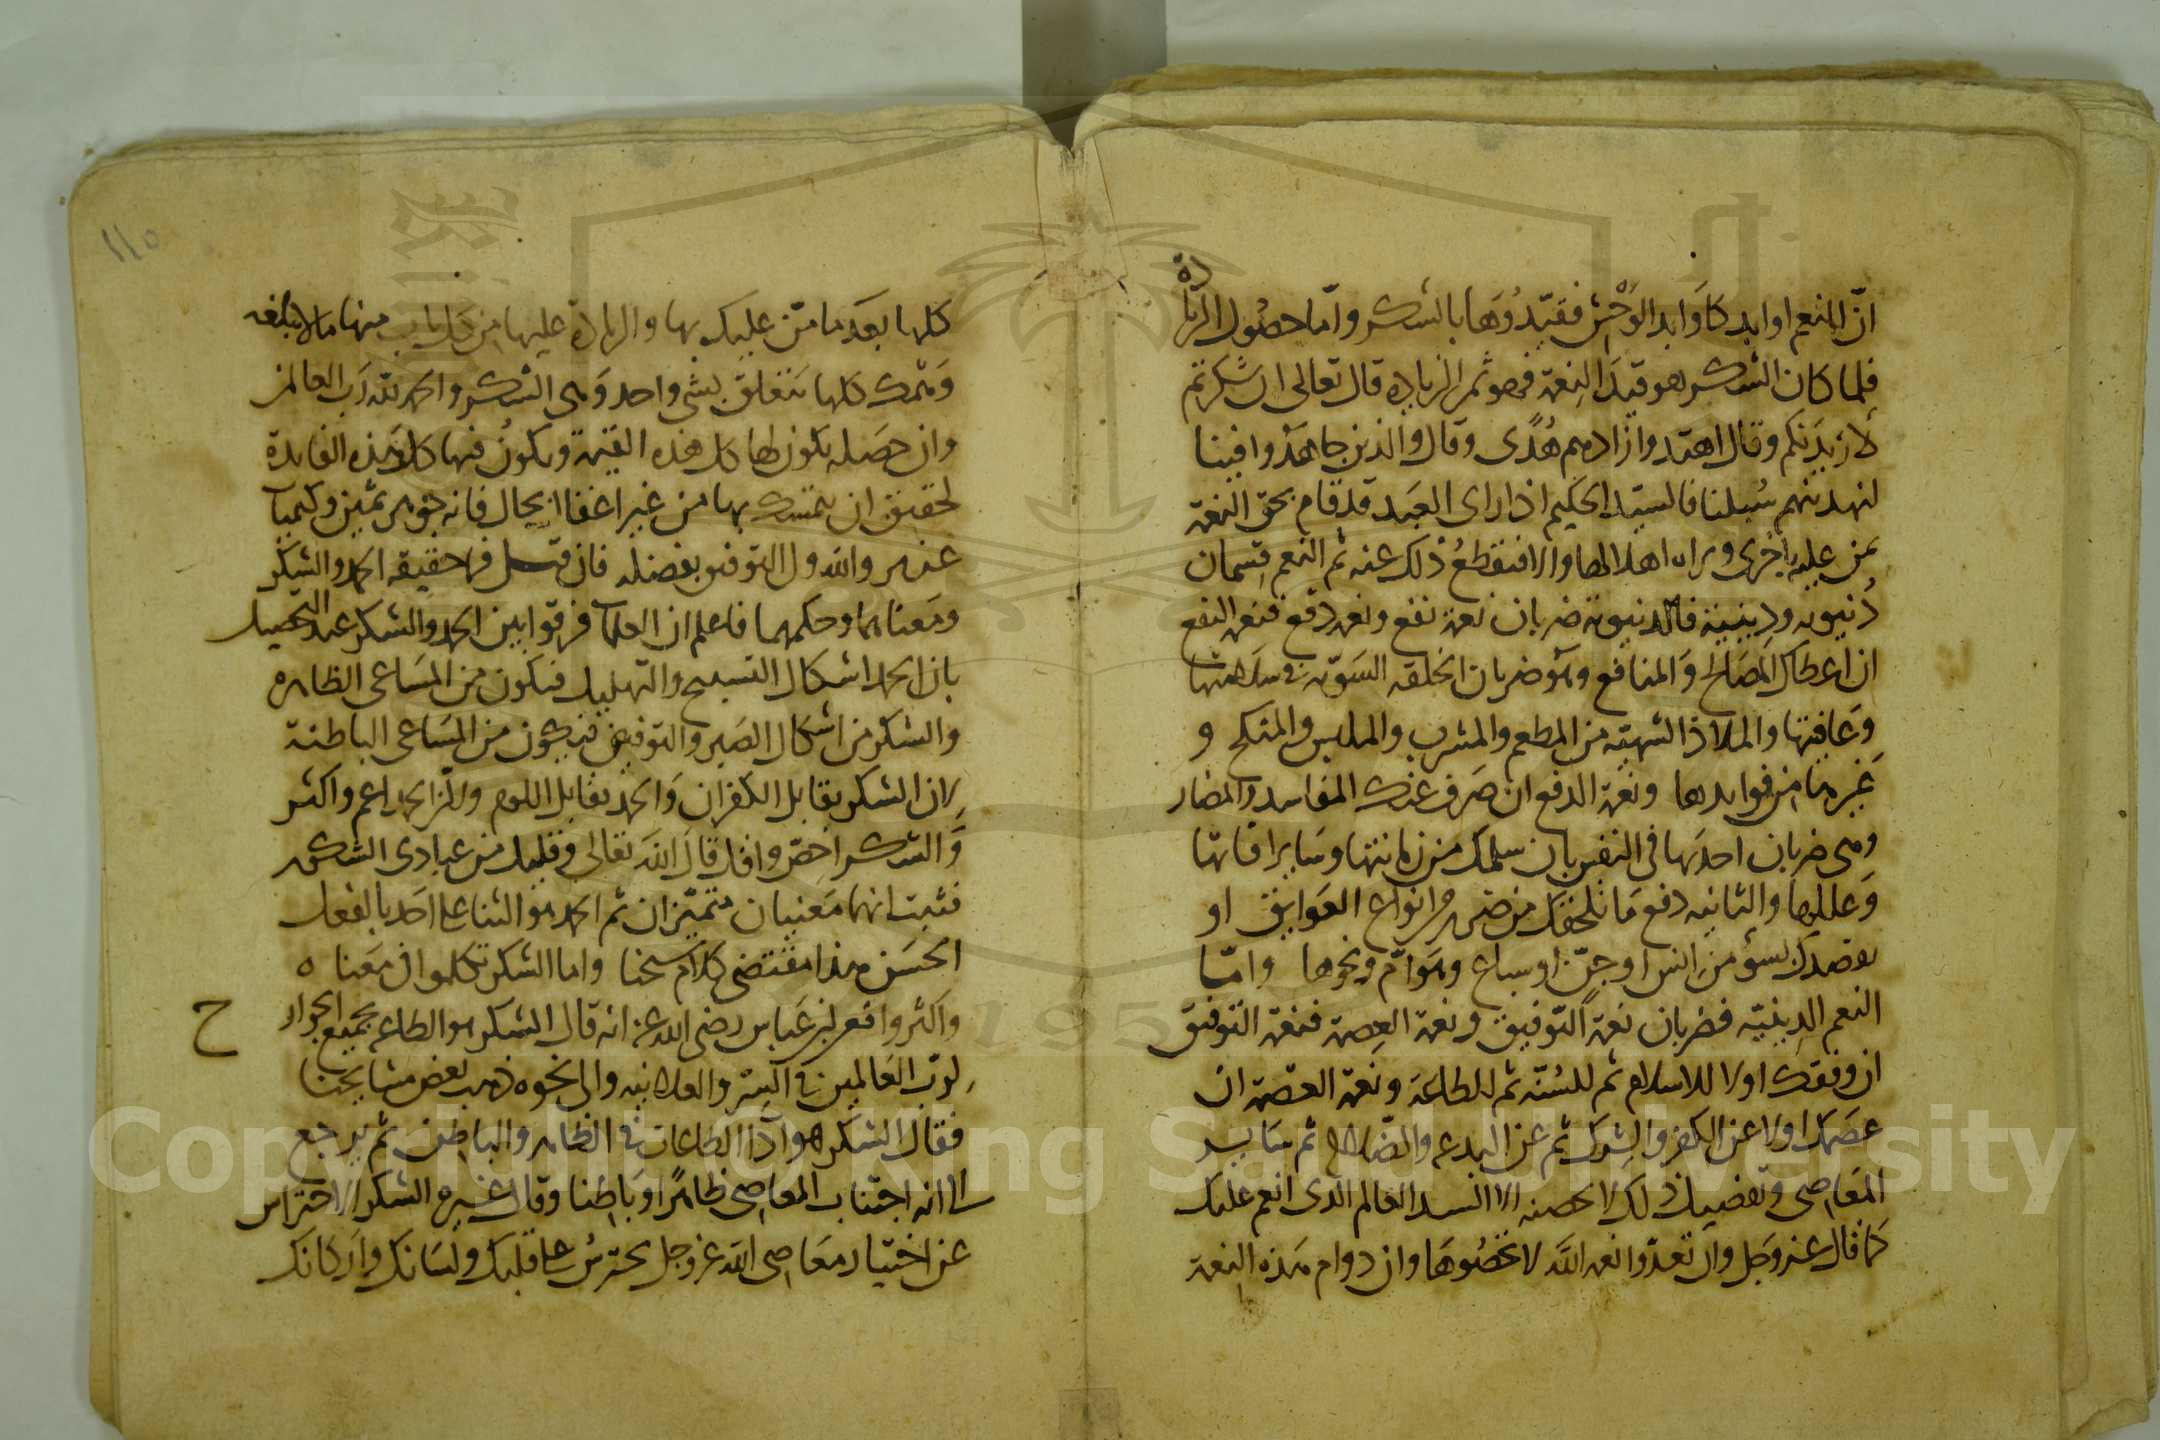 انّ للنعم اوابد كاَوَابد الوَحْش فقيّدُوَها بالشكر وامّا حصُول الزيادة
فلما كان الشكر هو قيدَ النِعمة فهو ثمر الزياده قال تعالى لان شكرتم
لازيدَنكم وقال اهتدوا زادهم هُدًى وقال والذين جاهَدُوا فينا
لنهدينهم سُبلنا فالسيّد الحكيم اذا راى العبَد قد قام بحق النعمة
يمن عليه باخرى ويراه اهلا لها والا فيقطعُ ذلك عنه ثم النعم قِسمان
دُنيويه ودِينيّة فالدنيوية ضربان نعمة نفع ونعمة دفع فنعمة النفع
ان اعطاك المَصَالح وَالمنافع وهو ضربان الخلقه السَويّه في سلامتها
وَعافيتها والملاذ الشهيّه من المطعم والمشرب والملبس والمنكح و
غيرها من فوايدها ونعمَة الدفع ان صَرف عنك المفاسد والمضار
وهى ضربان احدَيها فى النفس بان سلمك من زمانتها وسَاير افاتها
وَعللها والثانيه دفع مَا يلحقك من ضرر من انواع العَوايق او
يقصدك بسوُ من انس او جنّ او سباع وهوَامّ ونحوها وامّا
النعم الدِينيّه فضربان نعمة التّوفيق ونعمة العِصمة فنعمة التوفيق
ان وفقك اولا للاسلام ثم للسُنّة ثم للطاعَة ونعمة العصمة ان
عصَمك اولا عن الكفر والشِرك ثم عن البدعه والضّلاله ثم سَاير
المعَاصِى وتفصيل ذلك لا يحصيه الا السيد العالم الذى انعم عليك
كما قال عز وجَل وان تعدّوا نعمة اللّه لا تحصُوهَا وان دوام هَذه النِعمة
١١٥
كلها بعَد ما منّ عليك بها والزيادة عليها من كل باب منها ما لا يبلغه
وَهمك كلها يتعَلق بشى واحد وَهى الشكر والحمد لله رَب العالمين
وان خصَله يكون لها كل هذه القيمة ويكونُ فيها كل هذه الفايدة
لحقيق ان يتمسك بها من غير اغفال بحال فانه جوهر ثمين وكيميا
عزيز والله ولى التوفيق بفضله فان قيل فما حقيقه الحمد والشكر
ومَعناهما وحكمهما فاعلم ان العلما فرقوا بين الحمد والشكر عند التحصيل
بان الحمد اشكال التسبيح والتهليل فيكون من المسَاعى الظاهره
والشكر من اشكال الصَبر والتوفيض فيكون من المسَاعى الباطنة
لان الشكر يقابل الكفران وَالحمد يقابل اللوم ولان الحمد اعم واكثر
وَالشكر اخصّ واقل قال اللهَ تعالى وقليل من عبادى الشكور
فثبت انهما مَعنيان متميّزان ثم الحمد هو الثنا على احَد بالفعل
الحسَن هذا مقتضى كلام شيخنا واما الشكر تكلموا فى معَناه
واكثروا فعن ابن عَباس رضى الله عنه انه قال الشكر هو الطاعه بجميع الجوارح
لِربّ العَالمِين فى السِرّ والعلانيه والى نحوه ذهب بعض مشايخنا
فقال الشكر هو ادَاُ الطاعات فى الظاهر والباطن ثم يرجع
الى انه اجتناب المعاصِى ظاهرًا وبَاطِنا وقال غيره الشكر الاحتراس
عن اختيار معَاصِى الله عز وجل يحترسُ على قلبك ولسَانك واركانك